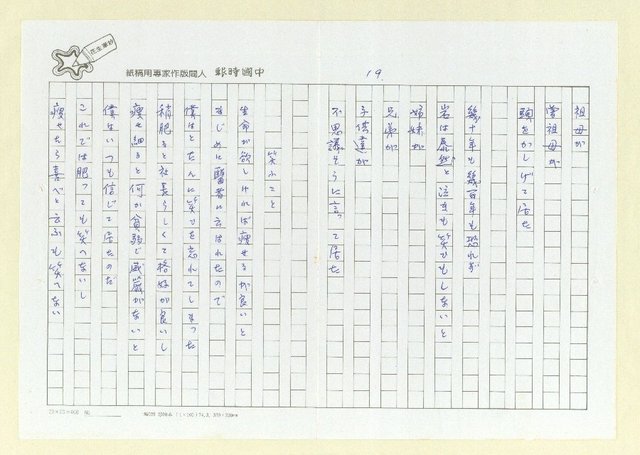 花生筆紗
中國時郵人間版作家專用稿紙
19.
祖母が
曾祖母が
頭をかしげて居た
幾十年も幾百年も恐れず
岩は泰然と泣きも笑ひもしないと
姉妹が
兄弟が
子供達が
不思議そうに言って居た
笑ふこと
生命が欲しければ痩せるが良いと
まじめに醫者に云はれたので
僕はとたんに笑ひを忘れてしまった
稍肥ると社長らしくて格好が良いし
痩せ細ると何か貧弱で威嚴がないと
僕はいつも信じて居たのだ
これでは肥っても笑へないし
痩せたら喜べと云ふも笑へない